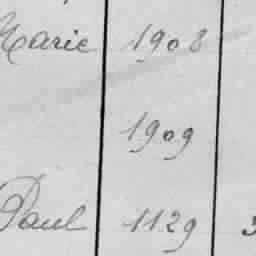 Marie 1908
1909
Paul 1129 3